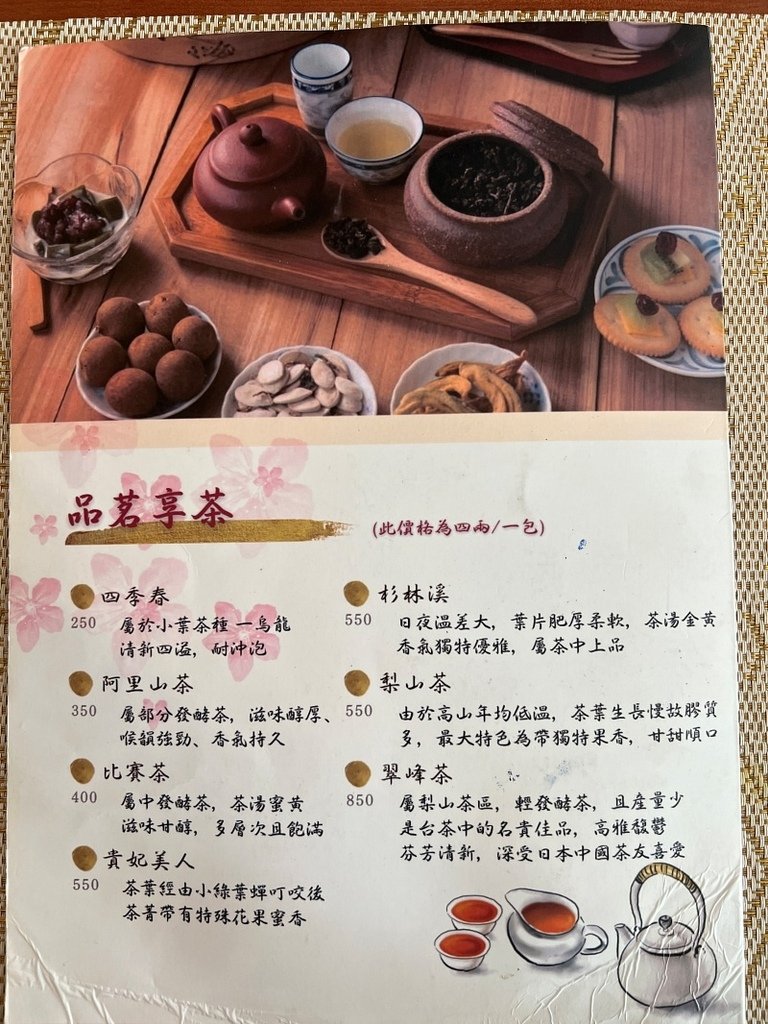 品茗享茶
(此價格為四兩/一包)
四季春
250
屬於小葉茶種 一烏龍
清新四溢, 耐沖泡
阿里山茶
350
屬部分發酵茶, 滋味醇厚、
喉韻強勁、香氣持久
比賽茶
400
屬中發酵茶, 茶湯蜜黃
滋味甘醇, 多層次且飽滿
貴妃美人
550
茶葉經由小綠葉蟬叮咬後
茶菁帶有特殊花果蜜香
杉林溪
550
日夜溫差大, 葉片肥厚柔軟, 茶湯金黃
香氣獨特優雅, 屬茶中上品
梨山茶
550
由於高山年均低溫, 茶葉生長慢故膠質
多, 最大特色為帶獨特果香, 甘甜順口
翠峰茶
850
屬梨山茶區, 輕發酵茶, 且產量少
是台茶中的名貴佳品, 高雅馥鬱
芬芳清新, 深受日本中國茶友喜愛